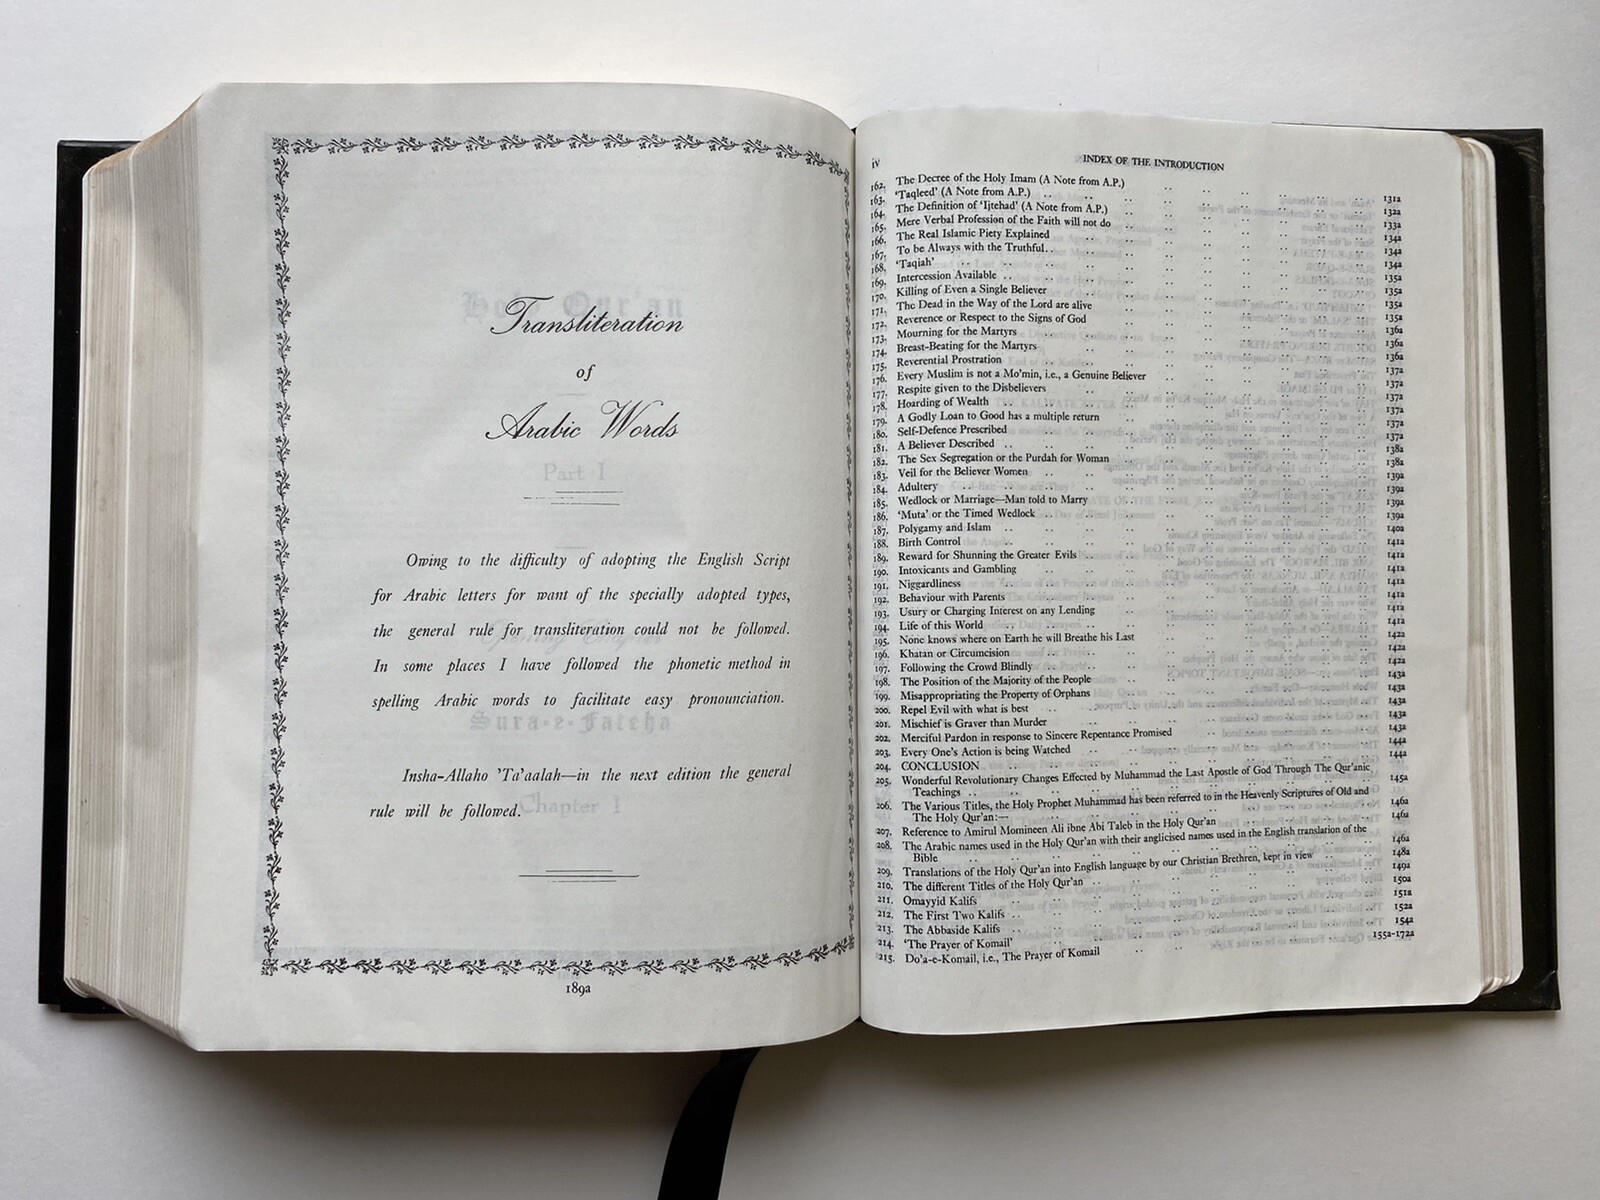 Transliteration
of
Arabic Words
Owing to the difficulty of adopting the English Script
for Arabic letters for want of the specially adopted types,
the general rule for transliteration could not be followed.
In some places I have followed the phonetic method in
spelling Arabic words to facilitate easy pronounciation.
Insha-Allaho 'Ta'aalah—in the next edition the general
rule will be followed.
189a
iv INDEX OF THE INTRODUCTION
162. The Decree of the Holy Imam (A Note from A.P.) 131a
163. 'Taqleed' (A Note from A.P.) 132a
164. The Definition of 'Ijtehad' (A Note from A.P.) 133a
165. Mere Verbal Profession of the Faith will not do 134a
166. The Real Islamic Piety Explained 134a
167. To be Always with the Truthful 134a
168. 'Taqiah' 135a
169. Intercession Available 135a
170. Killing of Even a Single Believer 135a
171. The Dead in the Way of the Lord are alive 135a
172. Reverence or Respect to the Signs of God 136a
173. Mourning for the Martyrs 136a
174. Breast-Beating for the Martyrs 136a
175. Reverential Prostration 137a
176. Every Muslim is not a Mo'min, i.e., a Genuine Believer 137a
177. Respite given to the Disbelievers 137a
178. Hoarding of Wealth 137a
179. A Godly Loan to Good has a multiple return 137a
180. Self-Defence Prescribed 137a
181. A Believer Described 138a
182. The Sex Segregation or the Purdah for Woman 138a
183. Veil for the Believer Women 139a
184. Adultery 139a
185. Wedlock or Marriage—Man told to Marry 139a
186. 'Muta' or the Timed Wedlock 139a
187. Polygamy and Islam 140a
188. Birth Control 141a
189. Reward for Shunning the Greater Evils 141a
190. Intoxicants and Gambling 141a
191. Niggardliness 141a
192. Behaviour with Parents 141a
193. Usury or Charging Interest on any Lending 141a
194. Life of this World 141a
195. None knows where on Earth he will Breathe his Last 142a
196. Khatan or Circumcision 142a
197. Following the Crowd Blindly 142a
198. The Position of the Majority of the People 143a
199. Misappropriating the Property of Orphans 143a
200. Repel Evil with what is best 143a
201. Mischief is Graver than Murder 143a
202. Merciful Pardon in response to Sincere Repentance Promised 143a
203. Every One's Action is being Watched 144a
204. CONCLUSION 144a
205. Wonderful Revolutionary Changes Effected by Muhammad the Last Apostle of God Through The Qur'anic
Teachings 145a
206. The Various Titles, the Holy Prophet Muhammad has been referred to in the Heavenly Scriptures of Old and
The Holy Qur'an:— 146a
207. Reference to Amirul Momineen Ali ibne Abi Taleb in the Holy Qur'an 146a
208. The Arabic names used in the Holy Qur'an with their anglicised names used in the English translation of the
Bible 146a
209. Translations of the Holy Qur'an into English language by our Christian Brethren, kept in view 148a
210. The different Titles of the Holy Qur'an 149a
211. Omayyid Kalifs 150a
212. The First Two Kalifs 151a
213. The Abbaside Kalifs 152a
214. 'The Prayer of Komail' 154a
215. Do'a-e-Komail, i.e., The Prayer of Komail 155a-172a